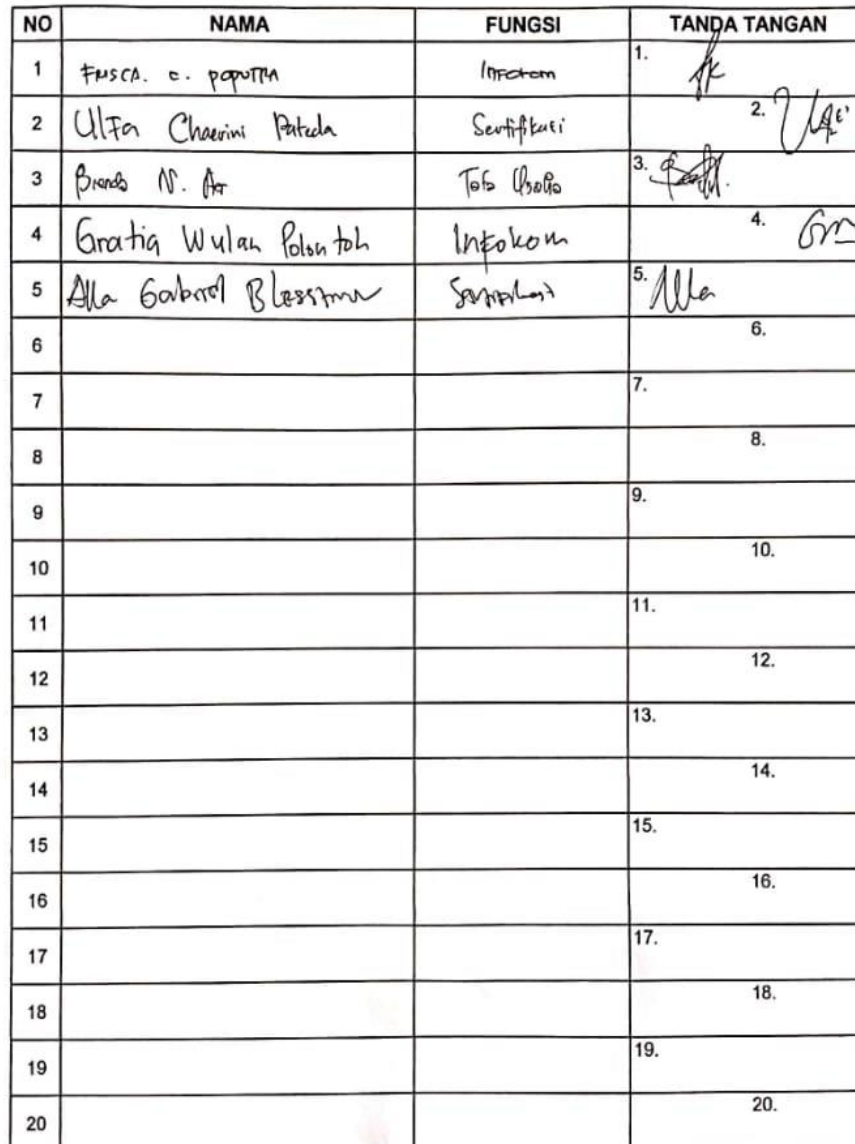 NO NAMA FUNGSI TANDA TANGAN
1 FRISCA. C. POPUTRA Infokom 1.
2 Ulfa Chaerini Pateda Sertifikasi 2.
3 N. Tata Usaha 3.
4 Gratia Wulan Polontoh Infokom 4.
5 Alla Gabriel Sertifikasi 5. Alla
6 6.
7 7.
8 8.
9 9.
10 10.
11 11.
12 12.
13 13.
14 14.
15 15.
16 16.
17 17.
18 18.
19 19.
20 20.